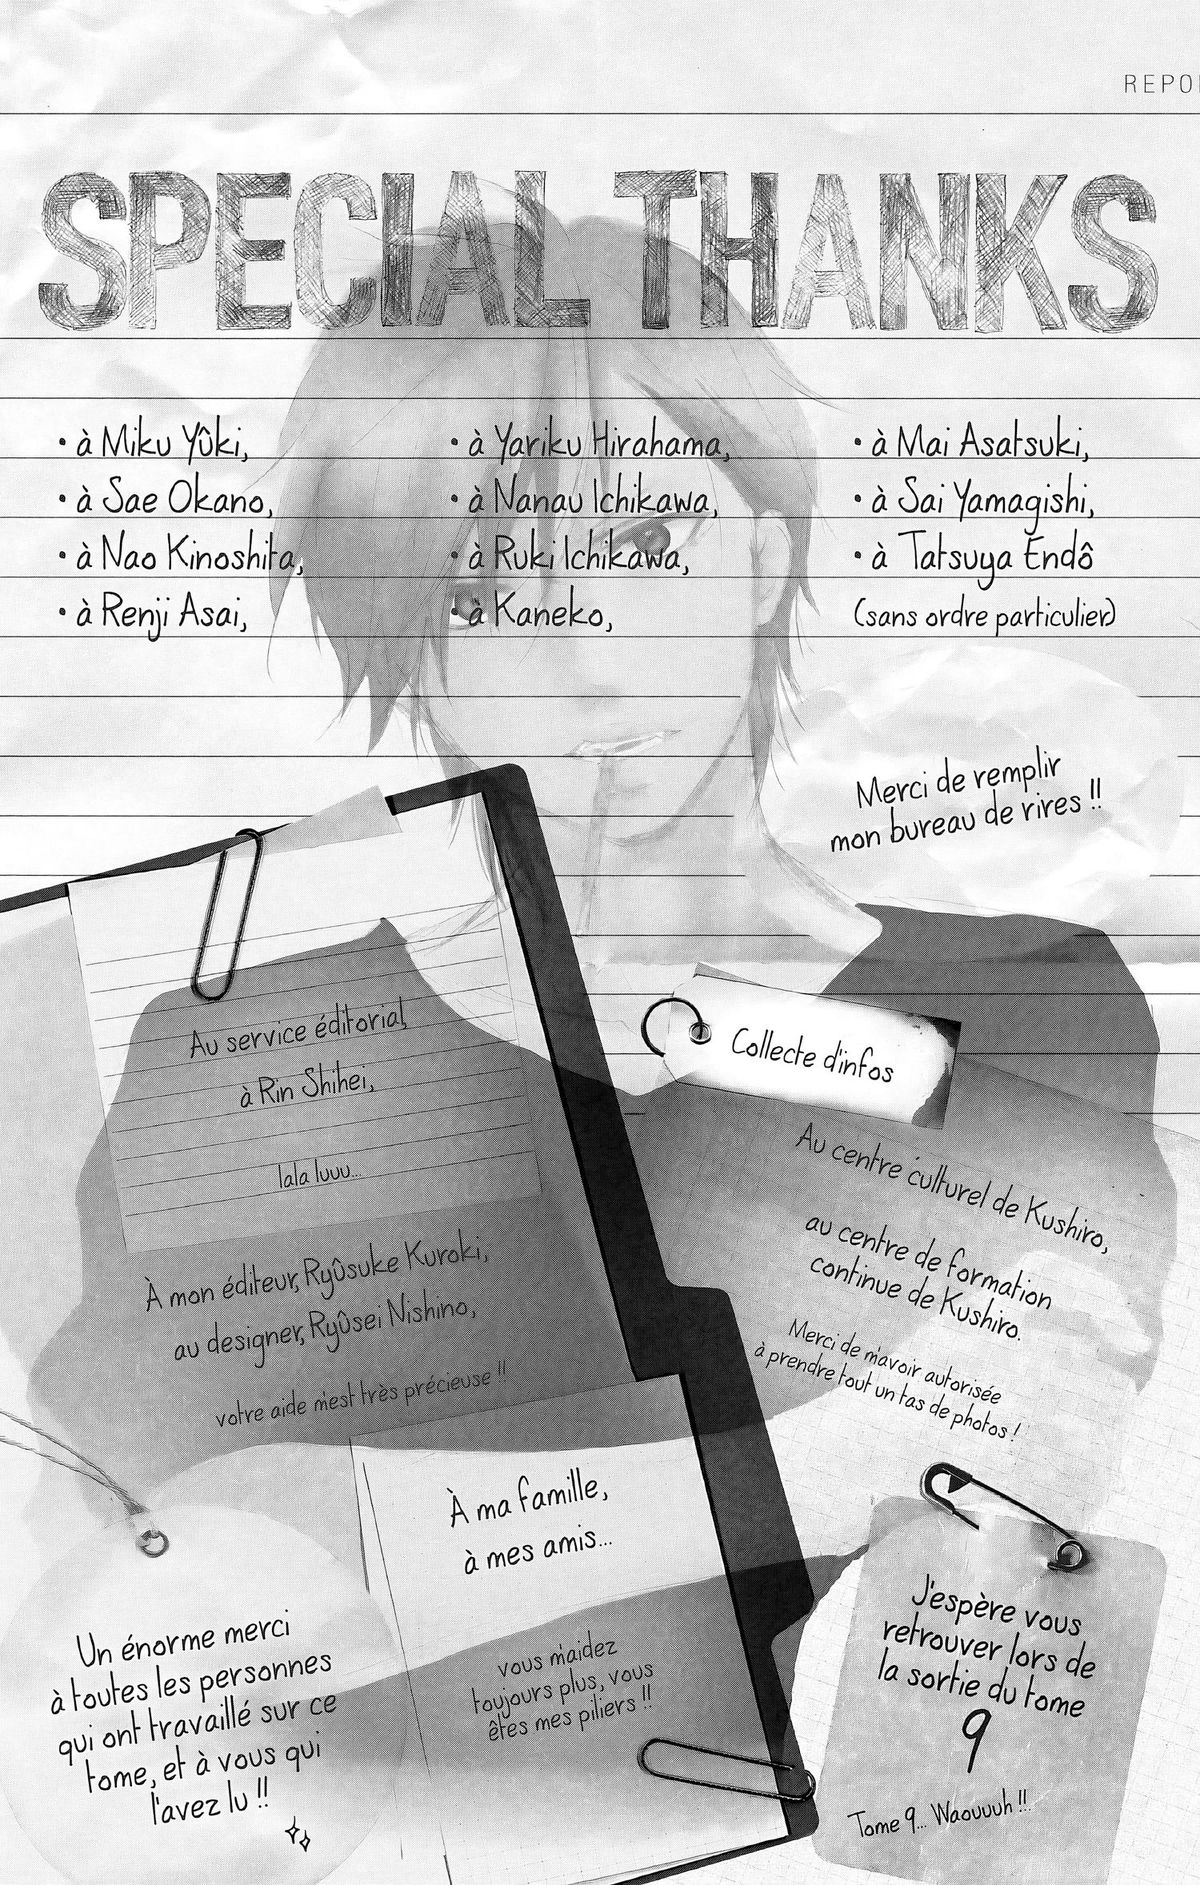 SPECIAL THANKS
• à Miku Yûki,
• à Sae Okano,
• à Nao Kinoshita,
• à Renji Asai,
• à Yariku Hirahama,
• à Nanau Ichikawa,
• à Ruki Ichikawa,
• à Kaneko,
• à Mai Asatsuki,
• à Sai Yamagishi,
• à Tatsuya Endô
(sans ordre particulier)
Merci de remplir
mon bureau de rires !!
Au service éditorial,
à Rin Shihei,
lala luuu...
À mon éditeur, Ryûsuke Kuroki,
au designer, Ryûsei Nishino,
votre aide m'est très précieuse !!
Collecte d'infos
Au centre culturel de Kushiro,
au centre de formation
continue de Kushiro.
Merci de m'avoir autorisée
à prendre tout un tas de photos !
À ma famille,
à mes amis...
vous m'aidez
toujours plus, vous
êtes mes piliers !!
Un énorme merci
à toutes les personnes
qui ont travaillé sur ce
tome, et à vous qui
l'avez lu !!
J'espère vous
retrouver lors de
la sortie du tome
9
Tome 9... Waouuuh !!